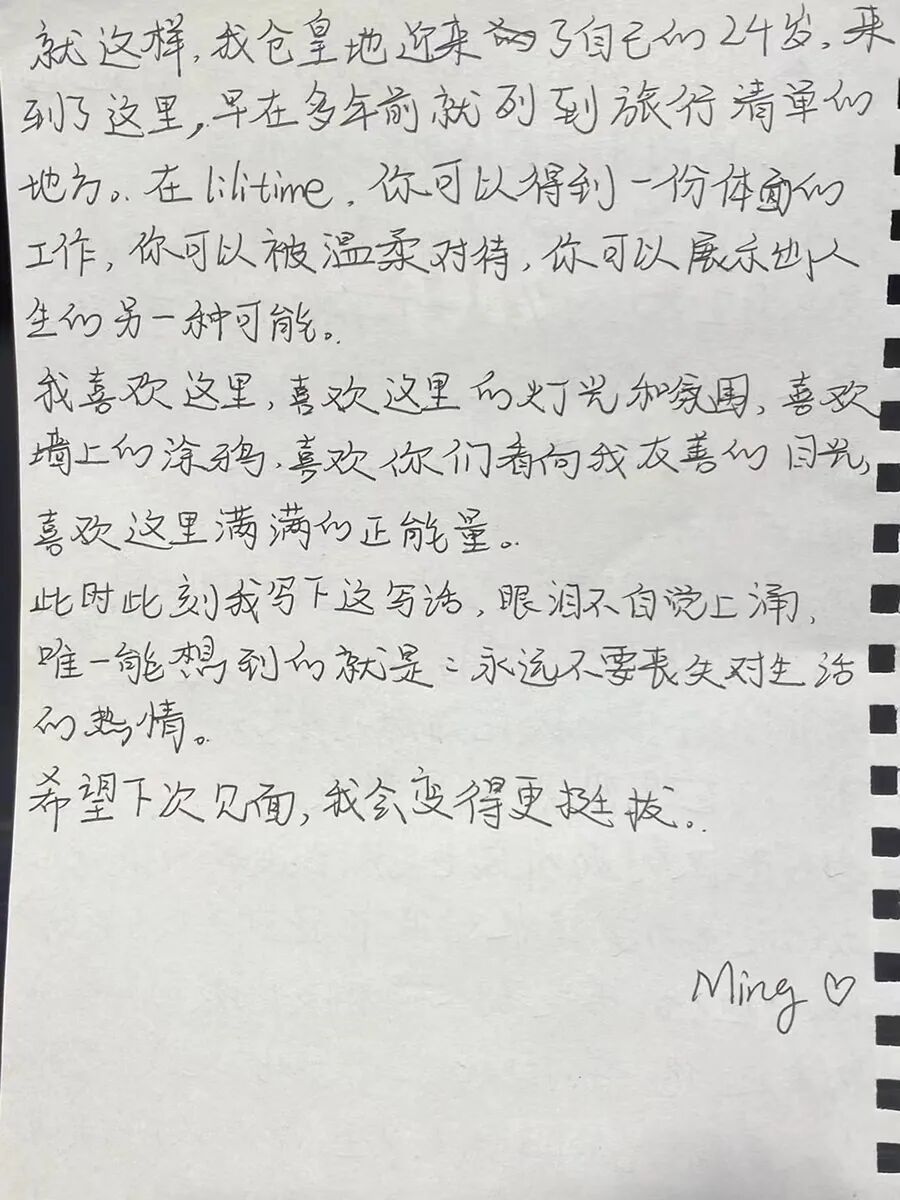 就这样，我仓皇地近来了自己的24岁，来
到了这里，早在多年前就列到旅行清单的
地方。在lilitime，你可以得到一份体面的
工作，你可以被温柔对待，你可以展示出人
生的另一种可能。
我喜欢这里，喜欢这里的灯光和氛围，喜欢
墙上的涂鸦，喜欢你们看向我友善的目光，
喜欢这里满满的正能量。
此时此刻我写下这写话，眼泪不自觉上涌，
唯一能想到的就是：永远不要丧失对生活
的热情。
希望下次见面，我会变得更挺拔。
Ming ♡